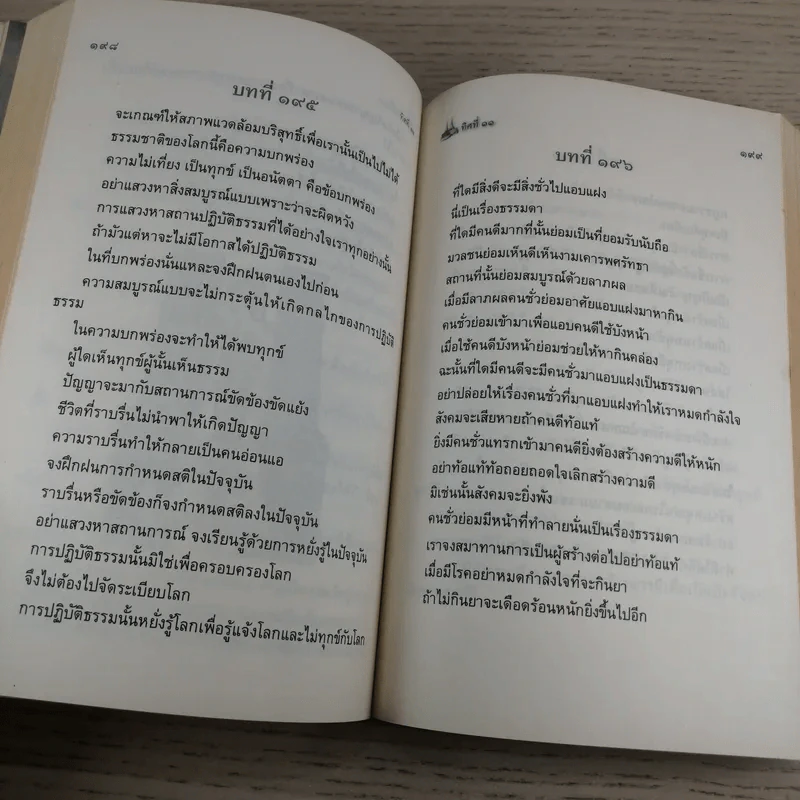 ๑๙๘
บทที่ ๑๙๕
จะเกณฑ์ให้สภาพแวดล้อมบริสุทธิ์เพื่อเรานั้นเป็นไปไม่ได้
ธรรมชาติของโลกนี้คือความบกพร่อง
ความไม่เที่ยง เป็นทุกข์ เป็นอนัตตา คือข้อบกพร่อง
อย่าแสวงหาสิ่งสมบูรณ์แบบเพราะว่าจะผิดหวัง
การแสวงหาสถานปฏิบัติธรรมที่ได้อย่างใจเราทุกอย่างนั้น
ถ้ามัวแต่หาจะไม่มีโอกาสได้ปฏิบัติธรรม
ในที่บกพร่องนั่นแหละจงฝึกฝนตนเองไปก่อน
ความสมบูรณ์แบบจะไม่กระตุ้นให้เกิดกลไกของการปฏิบัติ
ธรรม
ในความบกพร่องจะทำให้ได้พบทุกข์
ผู้ใดเห็นทุกข์ผู้นั้นเห็นธรรม
ปัญญาจะมากับสถานการณ์ขัดข้องขัดแย้ง
ชีวิตที่ราบรื่นไม่นำพาให้เกิดปัญญา
ความราบรื่นทำให้กลายเป็นคนอ่อนแอ
จงฝึกฝนการกำหนดสติในปัจจุบัน
ราบรื่นหรือขัดข้องก็จงกำหนดสติลงในปัจจุบัน
อย่าแสวงหาสถานการณ์ จงเรียนรู้ด้วยการหยั่งรู้ในปัจจุบัน
การปฏิบัติธรรมนั้นมิใช่เพื่อครอบครองโลก
จึงไม่ต้องไปจัดระเบียบโลก
การปฏิบัติธรรมนั้นหยั่งรู้โลกเพื่อรู้แจ้งโลกและไม่ทุกข์กับโลก
ทิศที่ ๑๑
๑๙๙
บทที่ ๑๙๖
ที่ใดมีสิ่งดีจะมีสิ่งชั่วไปแอบแฝง
นี่เป็นเรื่องธรรมดา
ที่ใดมีคนดีมากที่นั้นย่อมเป็นที่ยอมรับนับถือ
มวลชนย่อมเห็นดีเห็นงามเคารพศรัทธา
สถานที่นั้นย่อมสมบูรณ์ด้วยลาภผล
เมื่อมีลาภผลคนชั่วย่อมอาศัยแอบแฝงมาหากิน
คนชั่วย่อมเข้ามาเพื่อแอบคนดีใช้บังหน้า
เมื่อใช้คนดีบังหน้าย่อมช่วยให้หากินคล่อง
ฉะนั้นที่ใดมีคนดีจะมีคนชั่วมาแอบแฝงเป็นธรรมดา
อย่าปล่อยให้เรื่องคนชั่วที่มาแอบแฝงทำให้เราหมดกำลังใจ
สังคมจะเสียหายถ้าคนดีท้อแท้
ยิ่งมีคนชั่วแทรกเข้ามาคนดียิ่งต้องสร้างความดีให้หนัก
อย่าท้อแท้ท้อถอยถอดใจเลิกสร้างความดี
มิเช่นนั้นสังคมจะยิ่งพัง
คนชั่วย่อมมีหน้าที่ทำลายนั่นเป็นเรื่องธรรมดา
เราจงสมาทานการเป็นผู้สร้างต่อไปอย่าท้อแท้
เมื่อมีโรคอย่าหมดกำลังใจที่จะกินยา
ถ้าไม่กินยาจะเดือดร้อนหนักยิ่งขึ้นไปอีก